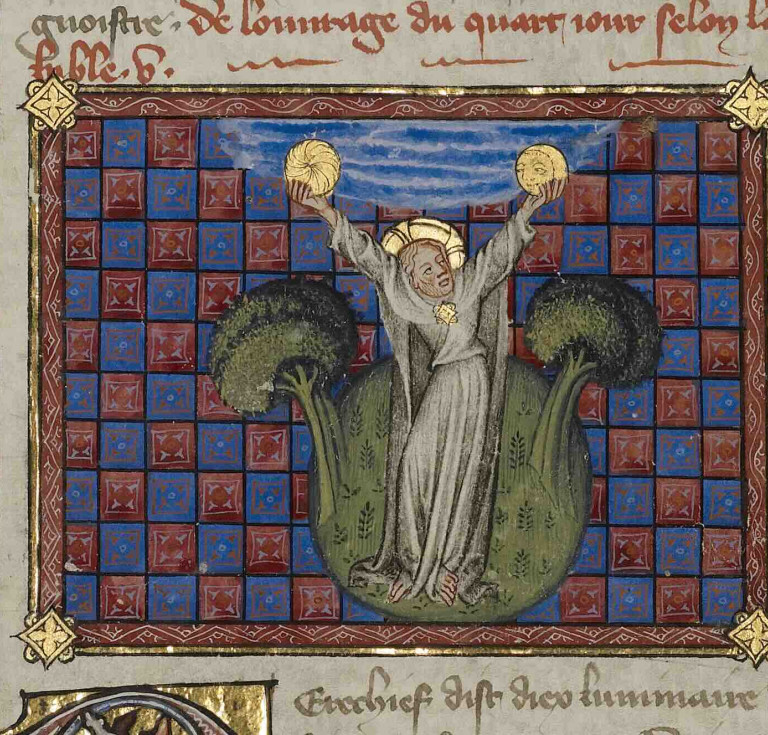 gnoistre. De louurage du quart iour selon la
bible. v.
Erechief dist diex luminaire